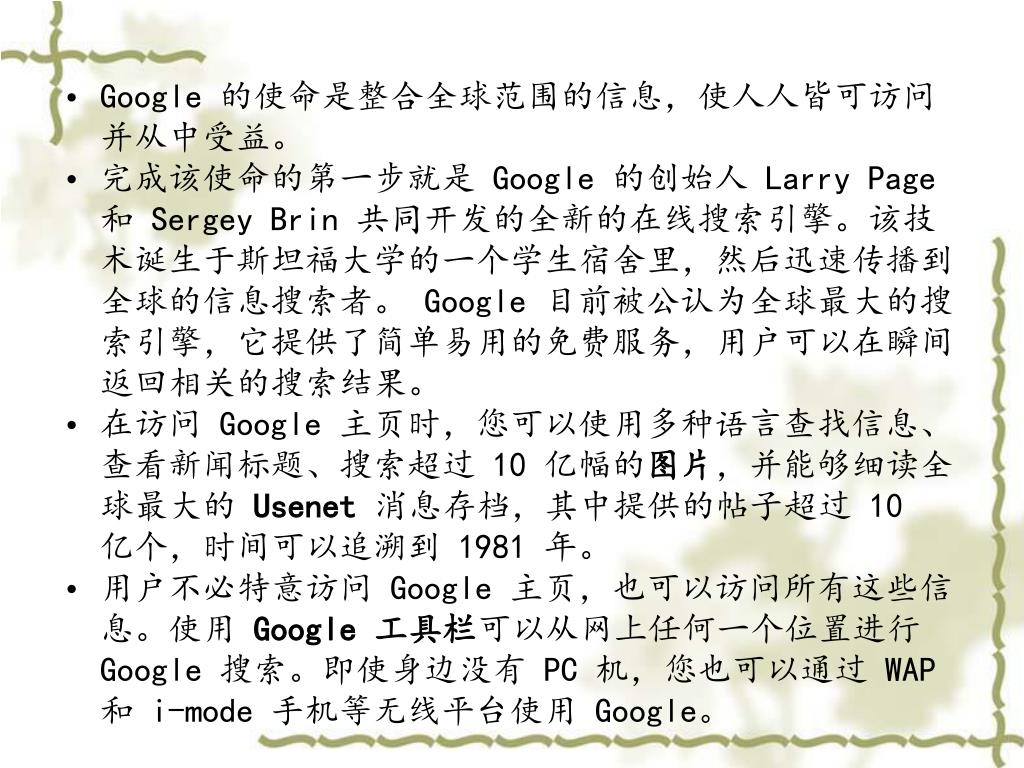 • Google 的使命是整合全球范围的信息，使人人皆可访问
并从中受益。
• 完成该使命的第一步就是 Google 的创始人 Larry Page
和 Sergey Brin 共同开发的全新的在线搜索引擎。该技
术诞生于斯坦福大学的一个学生宿舍里，然后迅速传播到
全球的信息搜索者。 Google 目前被公认为全球最大的搜
索引擎，它提供了简单易用的免费服务，用户可以在瞬间
返回相关的搜索结果。
• 在访问 Google 主页时，您可以使用多种语言查找信息、
查看新闻标题、搜索超过 10 亿幅的图片，并能够细读全
球最大的 Usenet 消息存档，其中提供的帖子超过 10
亿个，时间可以追溯到 1981 年。
• 用户不必特意访问 Google 主页，也可以访问所有这些信
息。使用 Google 工具栏可以从网上任何一个位置进行
Google 搜索。即使身边没有 PC 机，您也可以通过 WAP
和 i-mode 手机等无线平台使用 Google。